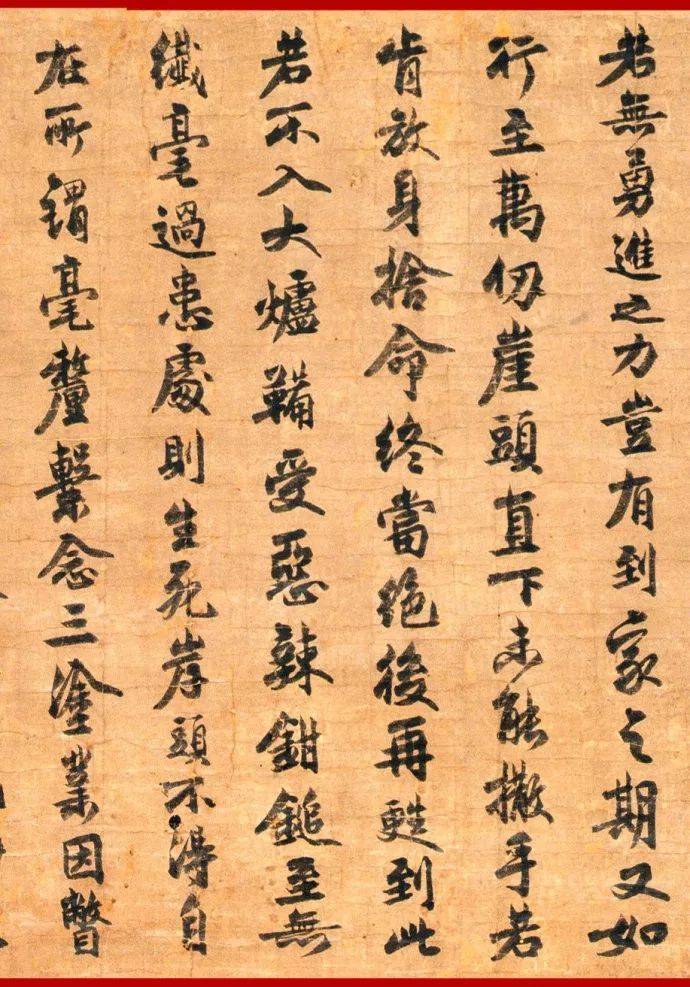 若無勇進之力豈有到家之期又如
行至萬仞崖頭直下未能撒手若
肯放身捨命終當絕後再甦到此
若不入大爐鞴受惡辣鉗鎚至無
纖毫過患處則生死岸頭不得自
在所謂毫釐繫念三塗業因瞥